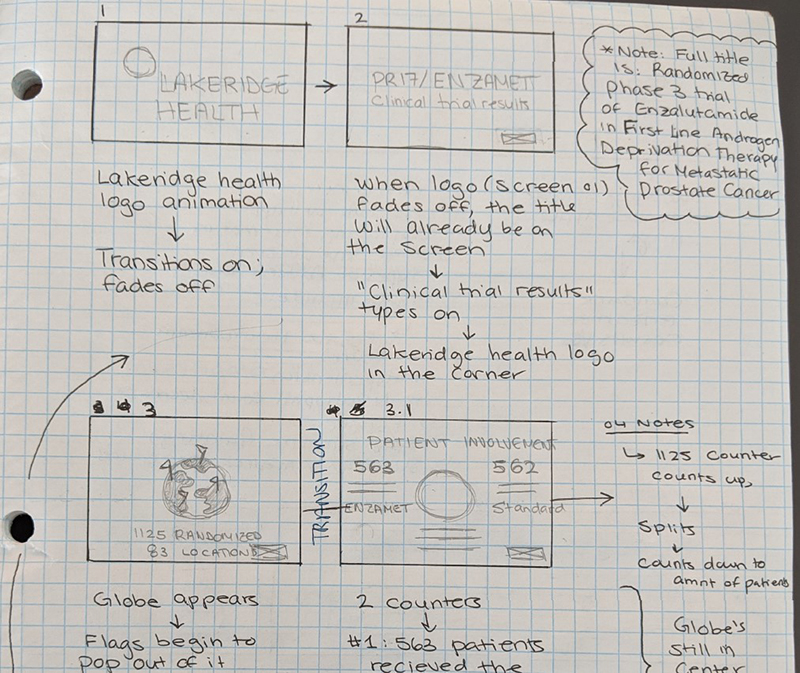 1
LAKERIDGE
HEALTH
Lakeridge health
logo animation
Transitions on;
fades off
2
PR17/ENZAMET
Clinical trial results
when logo (screen 01)
fades off, the title
will already be on
the screen
"Clinical trial results"
types on
Lakeridge health logo
in the corner
*Note: Full title
is: Randomized
phase 3 trial
of Enzalutamide
in First Line Androgen
Deprivation Therapy
for Metastatic
prostate Cancer
3
1125 RANDOMIZED
83 LOCATIONS
Globe appears
Flags begin to
pop out of it
TRANSITION
3.1
PATIENT INVOLVEMENT
563
562
ENZAMET
Standard
2 counters
#1: 563 patients
recieved the
04 Notes
1125 Counter
counts up,
Splits
Counts down to
amnt of patients
Globe's
still in
Center